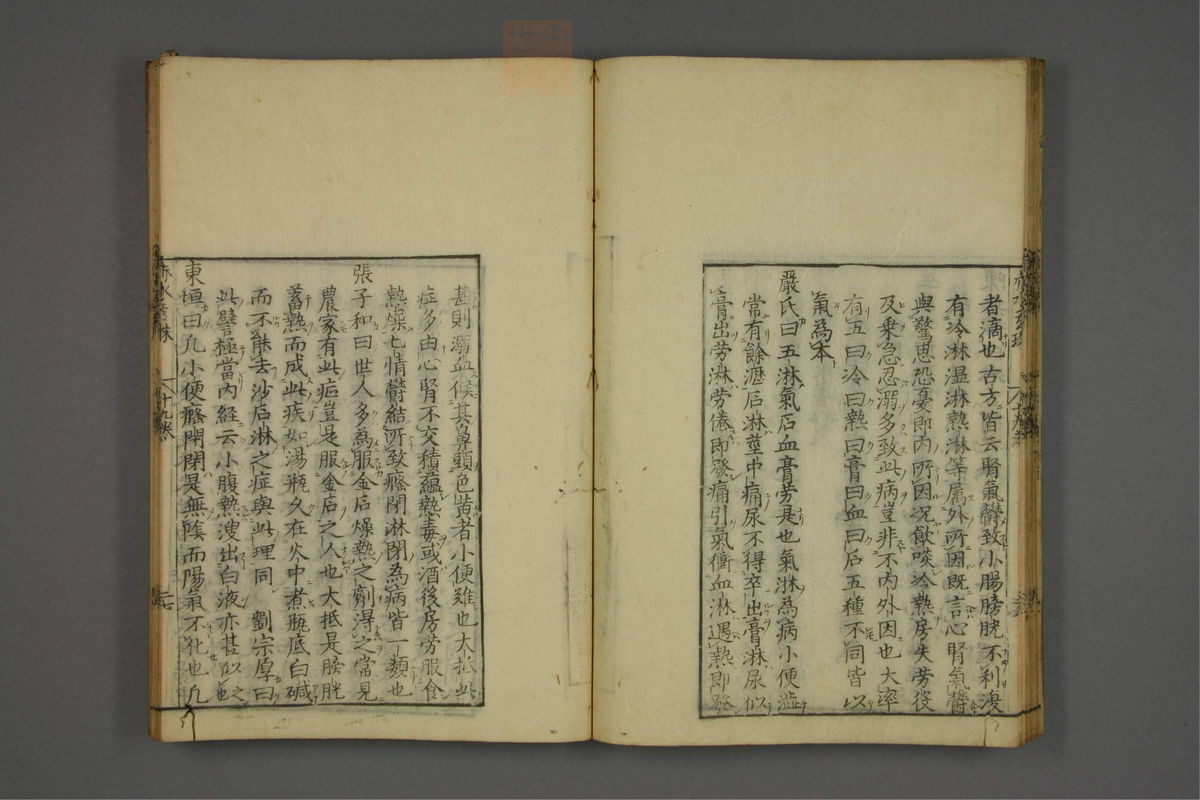 者滴也古方皆云腎氣欝致小腸膀胱不利復
有冷淋湿淋熱淋等属外所因既言心腎氣欝
與驚思恐憂即内所因况飲啖冷熱房失労役
及乗急忍溺多致此病豈非不内外因也大率
有五曰冷曰熱曰膏曰血曰石五種不同皆以
氣為本
嚴氏曰五淋氣石血膏劳是也氣淋為病小便澁
常有餘瀝石淋莖中痛尿不得卒出膏淋尿似
膏出劳淋劳倦即發痛引氣衝血淋遇熱即發
甚則溺血候其鼻頭色黄者小便難也大抵此
症多由心腎不交積蘊熱毒或酒後房劳服食
熱燥七情欝結所致癃閉淋閉為病皆一類也
張子和曰世人多為服金石燥熱之劑得之常見
農家有此疟豈是服金石之人也大抵是膀胱
蓄熱而成此疾如湯瓶久在火中煮瓶底白碱
而不能去沙石淋之症與此理同 劉宗厚曰
此譬極當内經云小腹熱溲出白液亦甚似之
東垣曰凢小便癃閉閉是無陰而陽氣不化也凢
十九卷